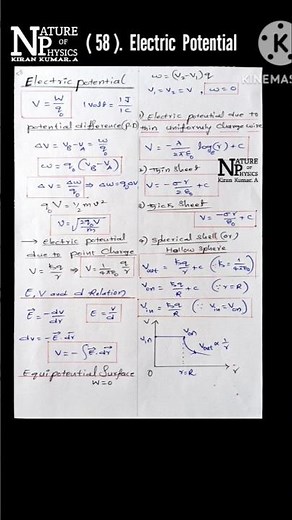 NATURE
OF
PHYSICS
KIRAN KUMAR. A
(58). Electric Potential
KINEMAS
Electric potential
V = W/q₀ 1 volt = 1J/1C
potential difference (P.D)
ΔV = V_B - V_A = W/q₀
W = q₀ (V_B - V_A)
ΔV = Δw/q₀ ⇒ Δw = q₀ΔV
q₀V = 1/2 mv²
V = √(2q₀V/m)
→ Electric potential
due to point Charge
V = kq/r ⇒ V = 1/4πε₀ q/r
E, V and d Relation
E⃗ = -dv/dr E = V/d
dv = -E⃗.dr⃗
V = -∫E⃗.dr⃗
Equipotential Surface
W=0
W = (V₂-V₁)q
V₁ = V₂ = V , W=0
1) Electric potential due to
thin uniformly charge wire
V = -λ/2πε₀ logₑ(r) + C
2) Thin Sheet
V = -σr/2ε₀ + C
3) Thick Sheet
V = -σr/ε₀ + C
NATURE
OF
PHYSICS
Kiran Kumar. A
4) Spherical Shell (or)
Hollow Sphere
V_out = kq/r + C (∵ k = 1/4πε₀)
V_on = kq/R + C (∵ r=R)
V_in = kq/R + C (∵ V_in = V_on)
V
V_in
V_on
V_out ∝ 1/r
O
r=R
r